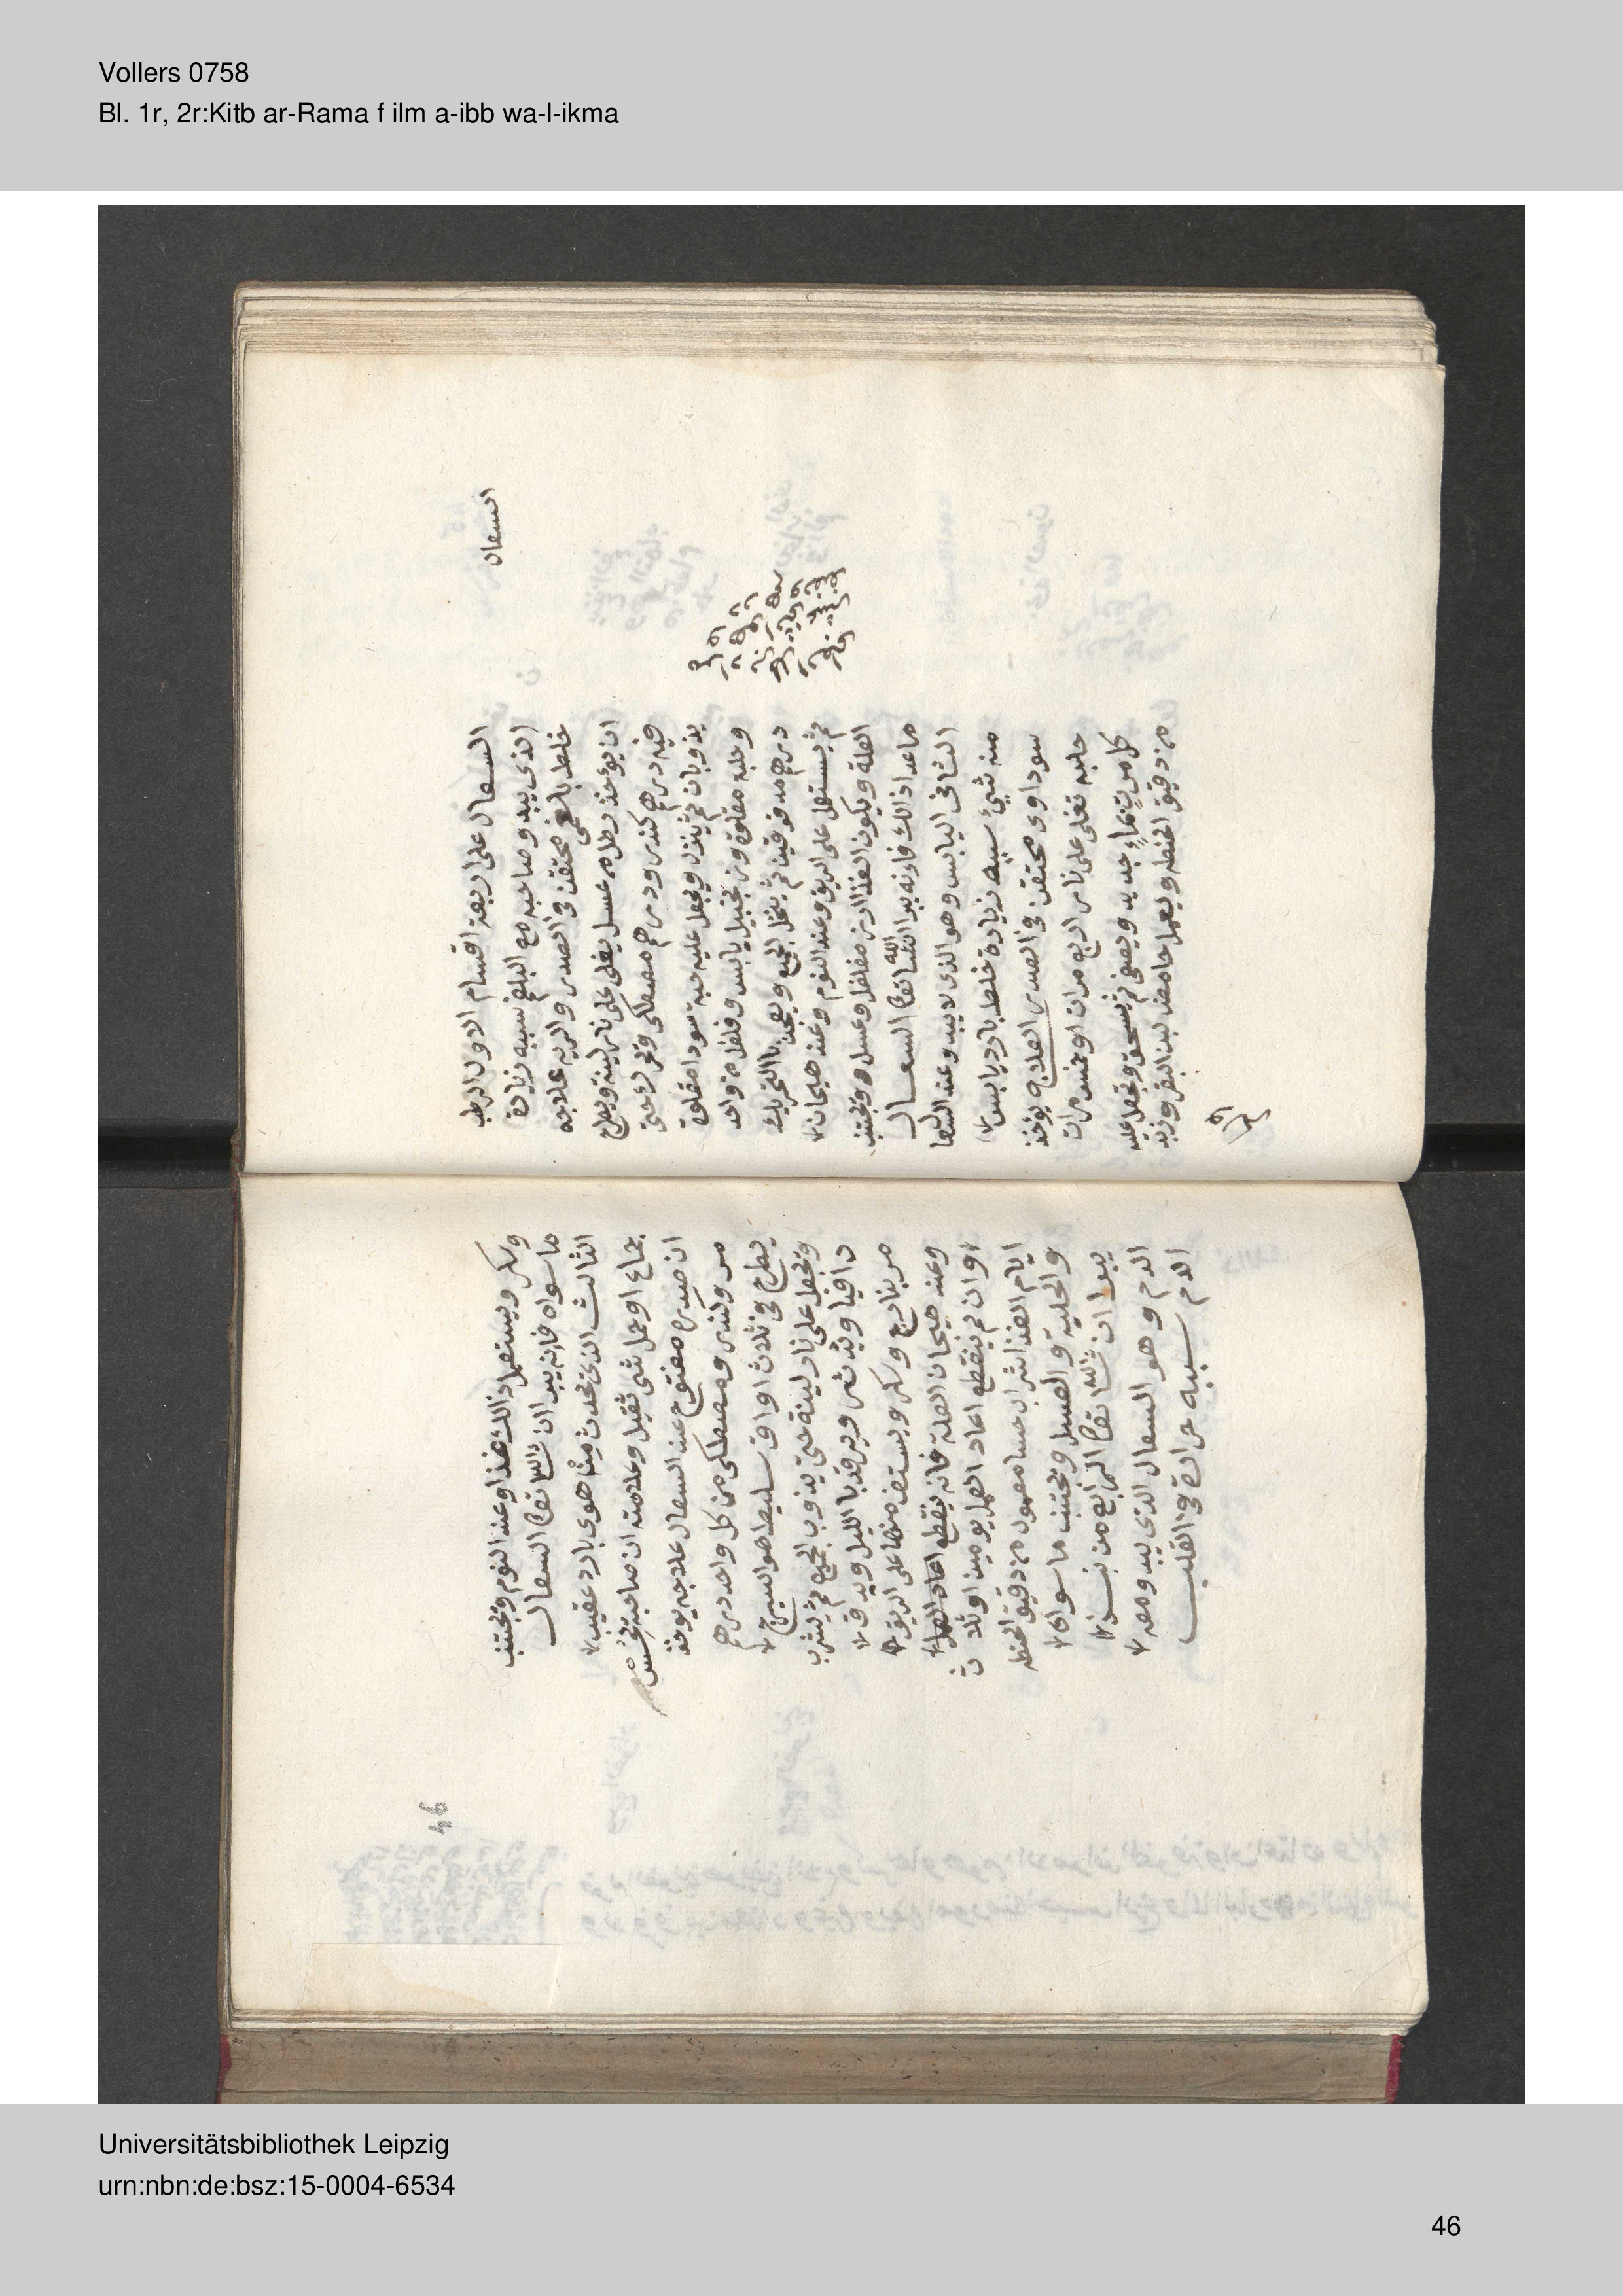 Vollers 0758
Bl. 1r, 2r:Kitb ar-Rama f ilm a-ibb wa-l-ikma
السعال
السعال على اربعة اقسام الاول الرطب
الذى يبدو صاحبه مع البلغم سببه زيادة
خلط بلغمى محتقن فى الصدر والريه علاجه
ان يؤخذ رطل من عسل يغلى على نار لينة ويطرح
فيه درهم كندر ودرهم مصطكى وتترك حتى
يذوبان ثم ينزل ويجعل عليه حبة سودا مقلوة
وحلبة مقلوة وزنجبيل يابس وفلفل من واحد
درهم مدقوقين ثم ينخل الجميع ويعجن بالتحريك
ثم يستعمل على الريق وعند النوم وعند هيجان
العلة ويكون الغذا ارز مفلفل وعسل ويجتنب
ما عدا ذالك فانه يبرا انشا الله تعا السعال
الثانى اليابس وهو الذى لا يبدو عند السعا
منه شيئ سببه زيادة خلط بارد يابس
سوداوى محتقن فى الصدر العلاج يؤخذ
حلبه تغلى على نار اربع مرات او خمس مرات
كل مرت بماء جديد ويصفى ثم يسحق ويجعل عليه
من دقيق الحنطه ويعمل حامض لبن البقر وزبد
وسكر ويستعمل ذالك غذا وعند النوم ويجتنب
ما سواه فانه يبرا ان شا الله تعا السعال
الثالث الذى يحدث من هوى بارد عقيب
جماع او حمل شى ثقيل وعلامته ان صاحبه يحس
ان صدره مفتوح عند السعال علاجه يوخذ
مر وكندر ومصطكى من كل واحد درهم
يطرح فى ثلاث اواق سليط هو السيرج
وتجعل على نار لينة حتى يذوب الجميع ثم يشرب
دافيا ويدثر ويرقد بالليل ويدق
مر بنارج وسكر ويستف منها على الريق
وعند هيجان العلة فانه يقطع اعاد العمل
وان لم ينقطع اعاد العمل يومين او ثلاث
ايام الغذا شراب حسا معمول من دقيق الحنطه
والحلبة والعسل ويجتنب ما سواه
يبرا ان شا الله تعا الرابع من نسذ
الدم وهو السعال الذى يبدو معه
الدم سببه حرارة فى القلب
46
Universitätsbibliothek Leipzig
urn:nbn:de:bsz:15-0004-6534
46